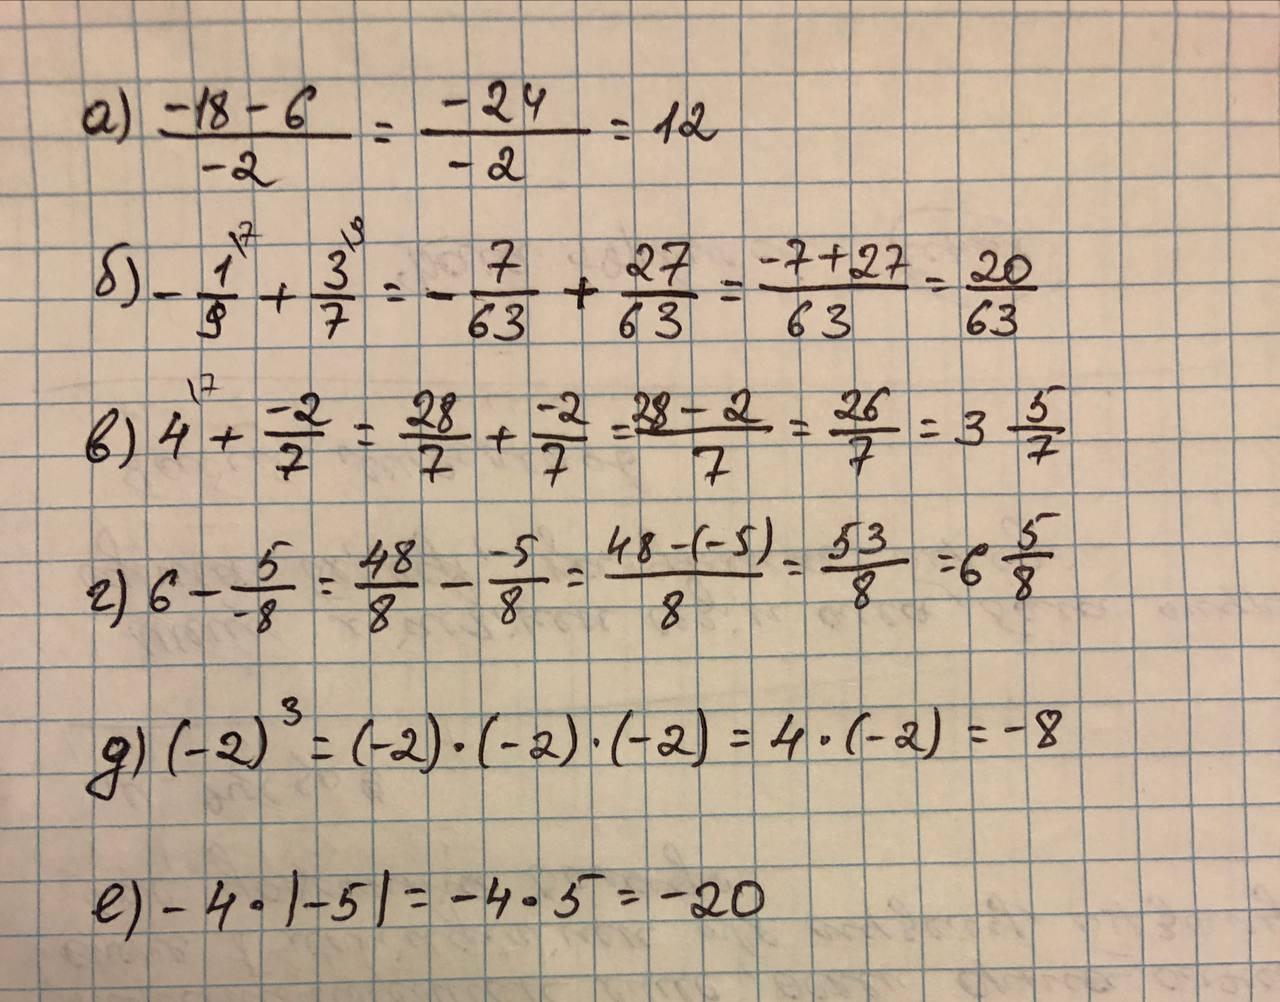 а) (-18 - 6)/(-2) = (-24)/(-2) = 12
б) - 1/9 \7 + 3/7 \9 = - 7/63 + 27/63 = (-7+27)/63 = 20/63
в) 4 \7 + (-2)/7 = 28/7 + (-2)/7 = (28 - 2)/7 = 26/7 = 3 5/7
г) 6 - 5/(-8) = 48/8 - (-5)/8 = (48-(-5))/8 = 53/8 = 6 5/8
д) (-2)³ = (-2)·(-2)·(-2) = 4·(-2) = -8
е) - 4·|-5| = -4·5 = -20